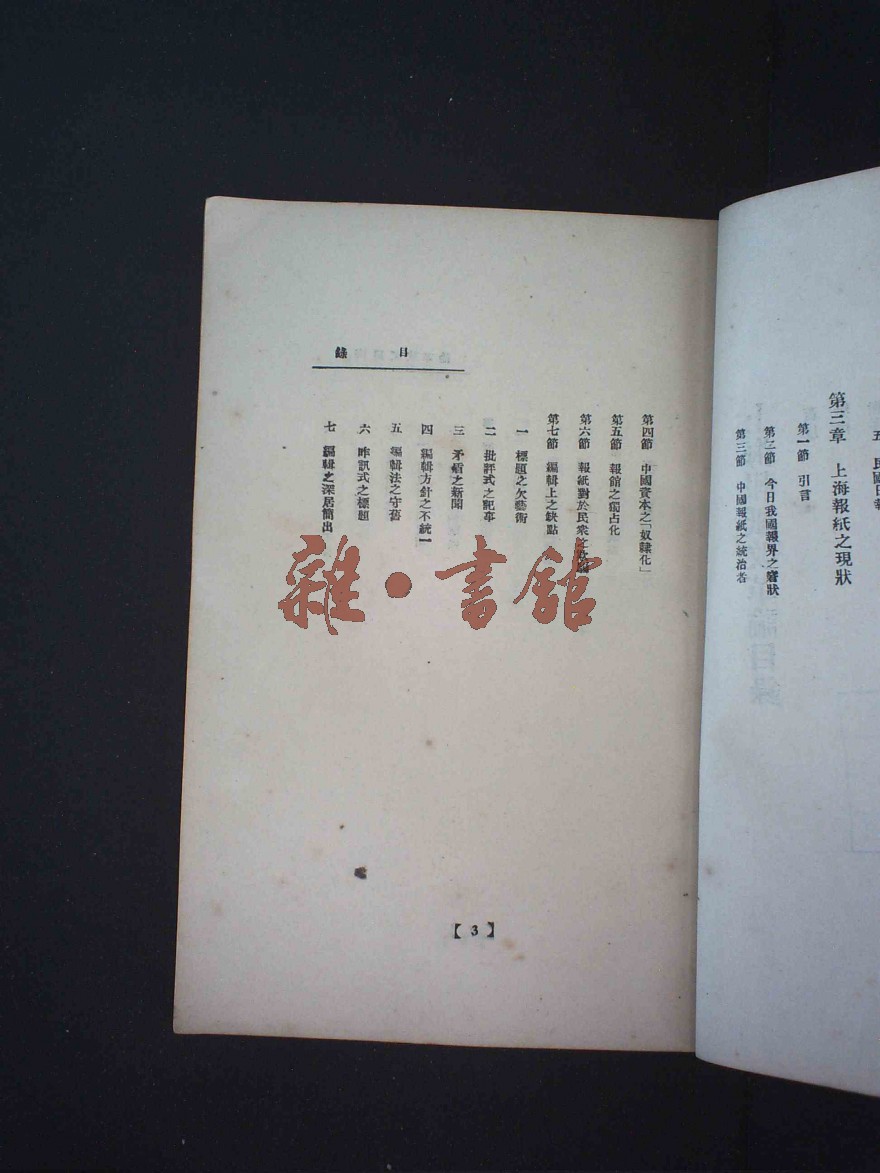 五 民國日報
第三章 上海報紙之現狀
第一節 引言
第二節 今日我國報界之窘狀
第三節 中國報紙之統治者
目錄
第四節 中國資本之「奴隸化」
第五節 報館之獨占化
第六節 報紙對於民衆之
第七節 編輯上之缺點
一 標題之欠藝術
二 批評式之記事
三 矛盾之新聞
四 編輯方針之不統一
五 編輯法之守舊
六 昨訊式之標題
七 編輯之深居簡出
【3】
雜·書館